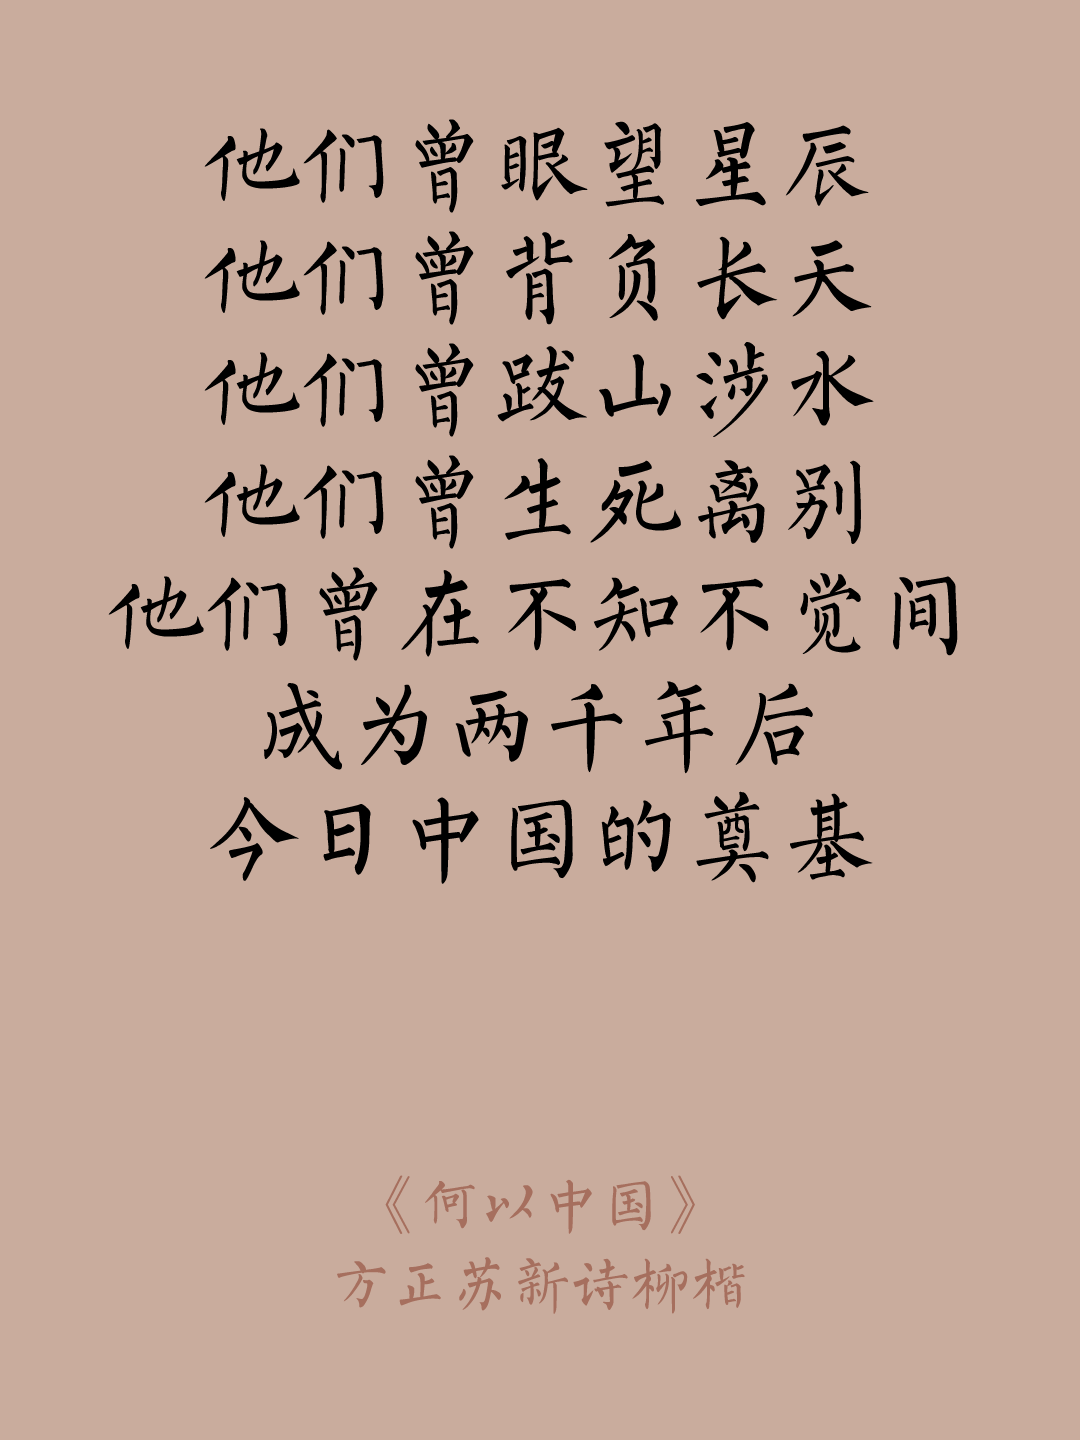 他们曾眼望星辰
他们曾背负长天
他们曾跋山涉水
他们曾生死离别
他们曾在不知不觉间
成为两千年后
今日中国的奠基
《何以中国》
方正苏新诗柳楷